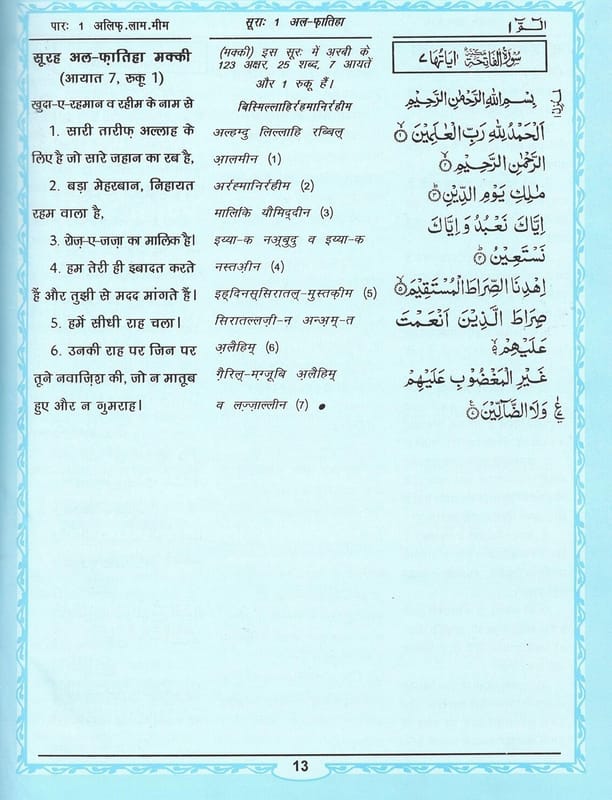 पारः 1 अलिफ़.लाम.मीम
सूराः 1 अल-फ़ातिहा
الٓـمّٓ ۱
सूरह अल-फ़ातिहा मक्की
(आयात 7, रुकू 1)
खुदा-ए-रहमान व रहीम के नाम से
1. सारी तारीफ़ अल्लाह के
लिए है जो सारे जहान का रब है,
2. बड़ा मेहरबान, निहायत
रहम वाला है,
3. रोज़-ए-जज़ा का मालिक है।
4. हम तेरी ही इबादत करते
हैं और तुझी से मदद मांगते हैं।
5. हमें सीधी राह चला।
6. उनकी राह पर जिन पर
तूने नवाज़िश की, जो न मातूब
हुए और न गुमराह।
(मक्की) इस सूरः में अरबी के
123 अक्षर, 25 शब्द, 7 आयतें
और 1 रुकू हैं।
बिस्मिल्लाहिर्रहमानिर्रहीम
अल्हम्दु लिल्लाहि रब्बिल्
आ़लमीन (1)
अर्रह्मानिर्रहीम (2)
मालिकि यौमिद्दीन (3)
इय्या-क नअ्बुदु व इय्या-क
नस्तअ़ीन (4)
इह्दिनस्सिरातल्-मुस्तक़ीम (5)
सिरातल्लज़ी-न अन्अ़म्-त
अ़लैहिम् (6)
ग़ैरिल्-मग़्ज़ूबि अ़लैहिम्
व लज़्ज़ाल्लीन (7) ●
سُوۡرَةُ الۡفَاتِحَةِ مَكِّيَّةٌ اٰيَاتُهَا ٧
بِسۡمِ اللهِ الرَّحۡمٰنِ الرَّحِيۡمِ
اَلۡحَمۡدُ لِلّٰهِ رَبِّ الۡعٰلَمِيۡنَ ۙ‏﴿۱﴾
الرَّحۡمٰنِ الرَّحِيۡمِ ۙ‏﴿۲﴾
مٰلِكِ يَوۡمِ الدِّيۡنِ ؕ‏﴿۳﴾
اِيَّاكَ نَعۡبُدُ وَاِيَّاكَ
نَسۡتَعِيۡنُ ؕ‏﴿۴﴾
اِهۡدِنَا الصِّرَاطَ الۡمُسۡتَقِيۡمَ ۙ‏﴿۵﴾
صِرَاطَ الَّذِيۡنَ اَنۡعَمۡتَ
عَلَيۡهِمۡ ۙ
غَيۡرِ الۡمَغۡضُوۡبِ عَلَيۡهِمۡ
وَلَا الضَّآلِّيۡنَ
13